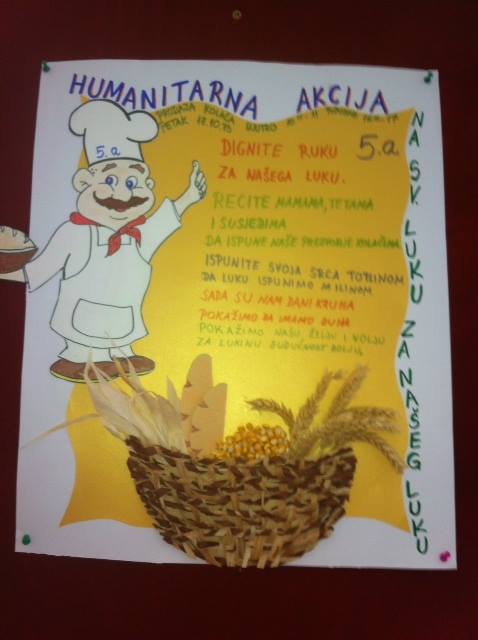 HUMANITARNA AKCIJA
PRODAJA KOLAČA
PETAK
5.a
5.a
DIGNITE RUKU
ZA NAŠEGA LUKU.
RECITE MAMAMA, TETAMA
I SUSJEDIMA
DA ISPUNE NAŠE PREDVORJE KOLAČIMA
ISPUNITE SVOJA SRCA TOPLINOM
DA LUKU ISPUNIMO MILINOM
SADA SU NAM DANI KRUHA
POKAŽIMO DA IMAMO DUHA
POKAŽIMO NAŠU ŽELJU I VOLJU
ZA LUKINU BUDUĆNOST BOLJU
NA SV. LUKU ZA NAŠEG LUKU